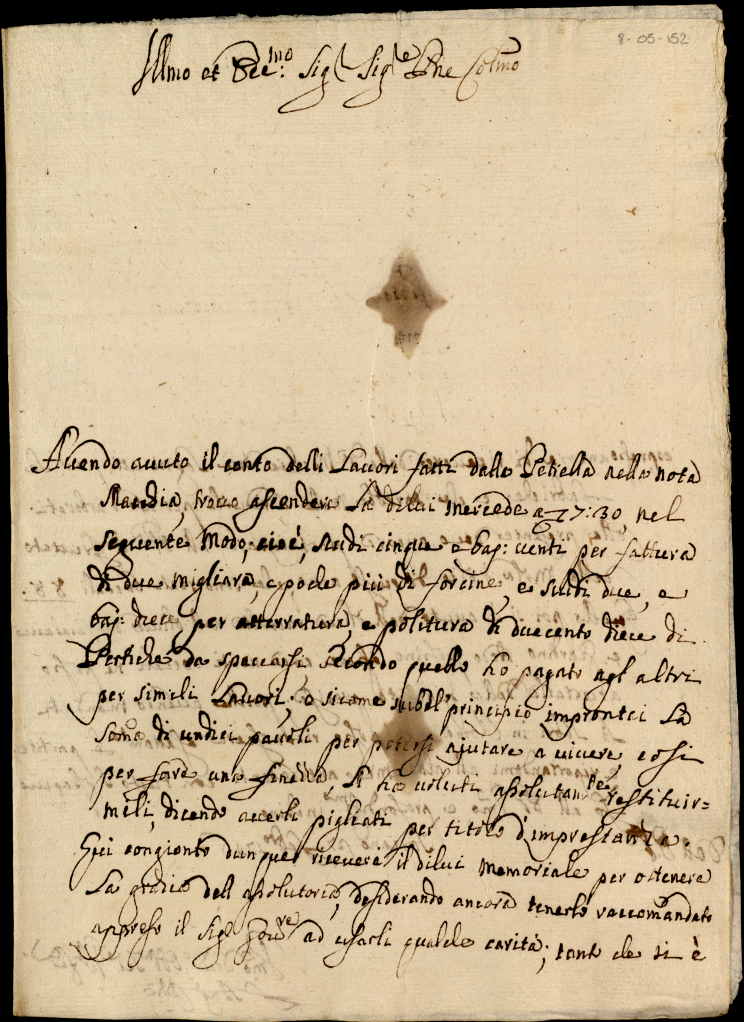 8-05-152
Illmo et Ecc:mo Sigr Sigre Pne Colmo
Avendo avuto il conto delli Lavori fatti dallo Petrella nella nota
Macchia, trovo ascendere la dilui mercede a 7:30, nel
seguente modo; cioè, scudi cinque e baj: venti per fattura
di due migliara, e poche più di forcine, e scudi due, e
baj: diece per atterratura, e politura di duecento diece di
Pertiche da spaccarsi secondo quello ho pagato agl'altri
per simili Lavori; e sicome subbl' principio improntai la
soma di undici pavoli per potersi ajutare a vivere, cosi
per fare una finezza, li ha voluti assolutamte restituir=
meli, dicendo averli pigliati per titolo d'imprestanza.
Qui congionto dunque riceverà il dilui Memoriale per ottenere
la grazia dell'assolutoria, desiderando ancora tenerlo raccomandato
appresso il Sigr Govre ad usarli qualche carità; tant che si è